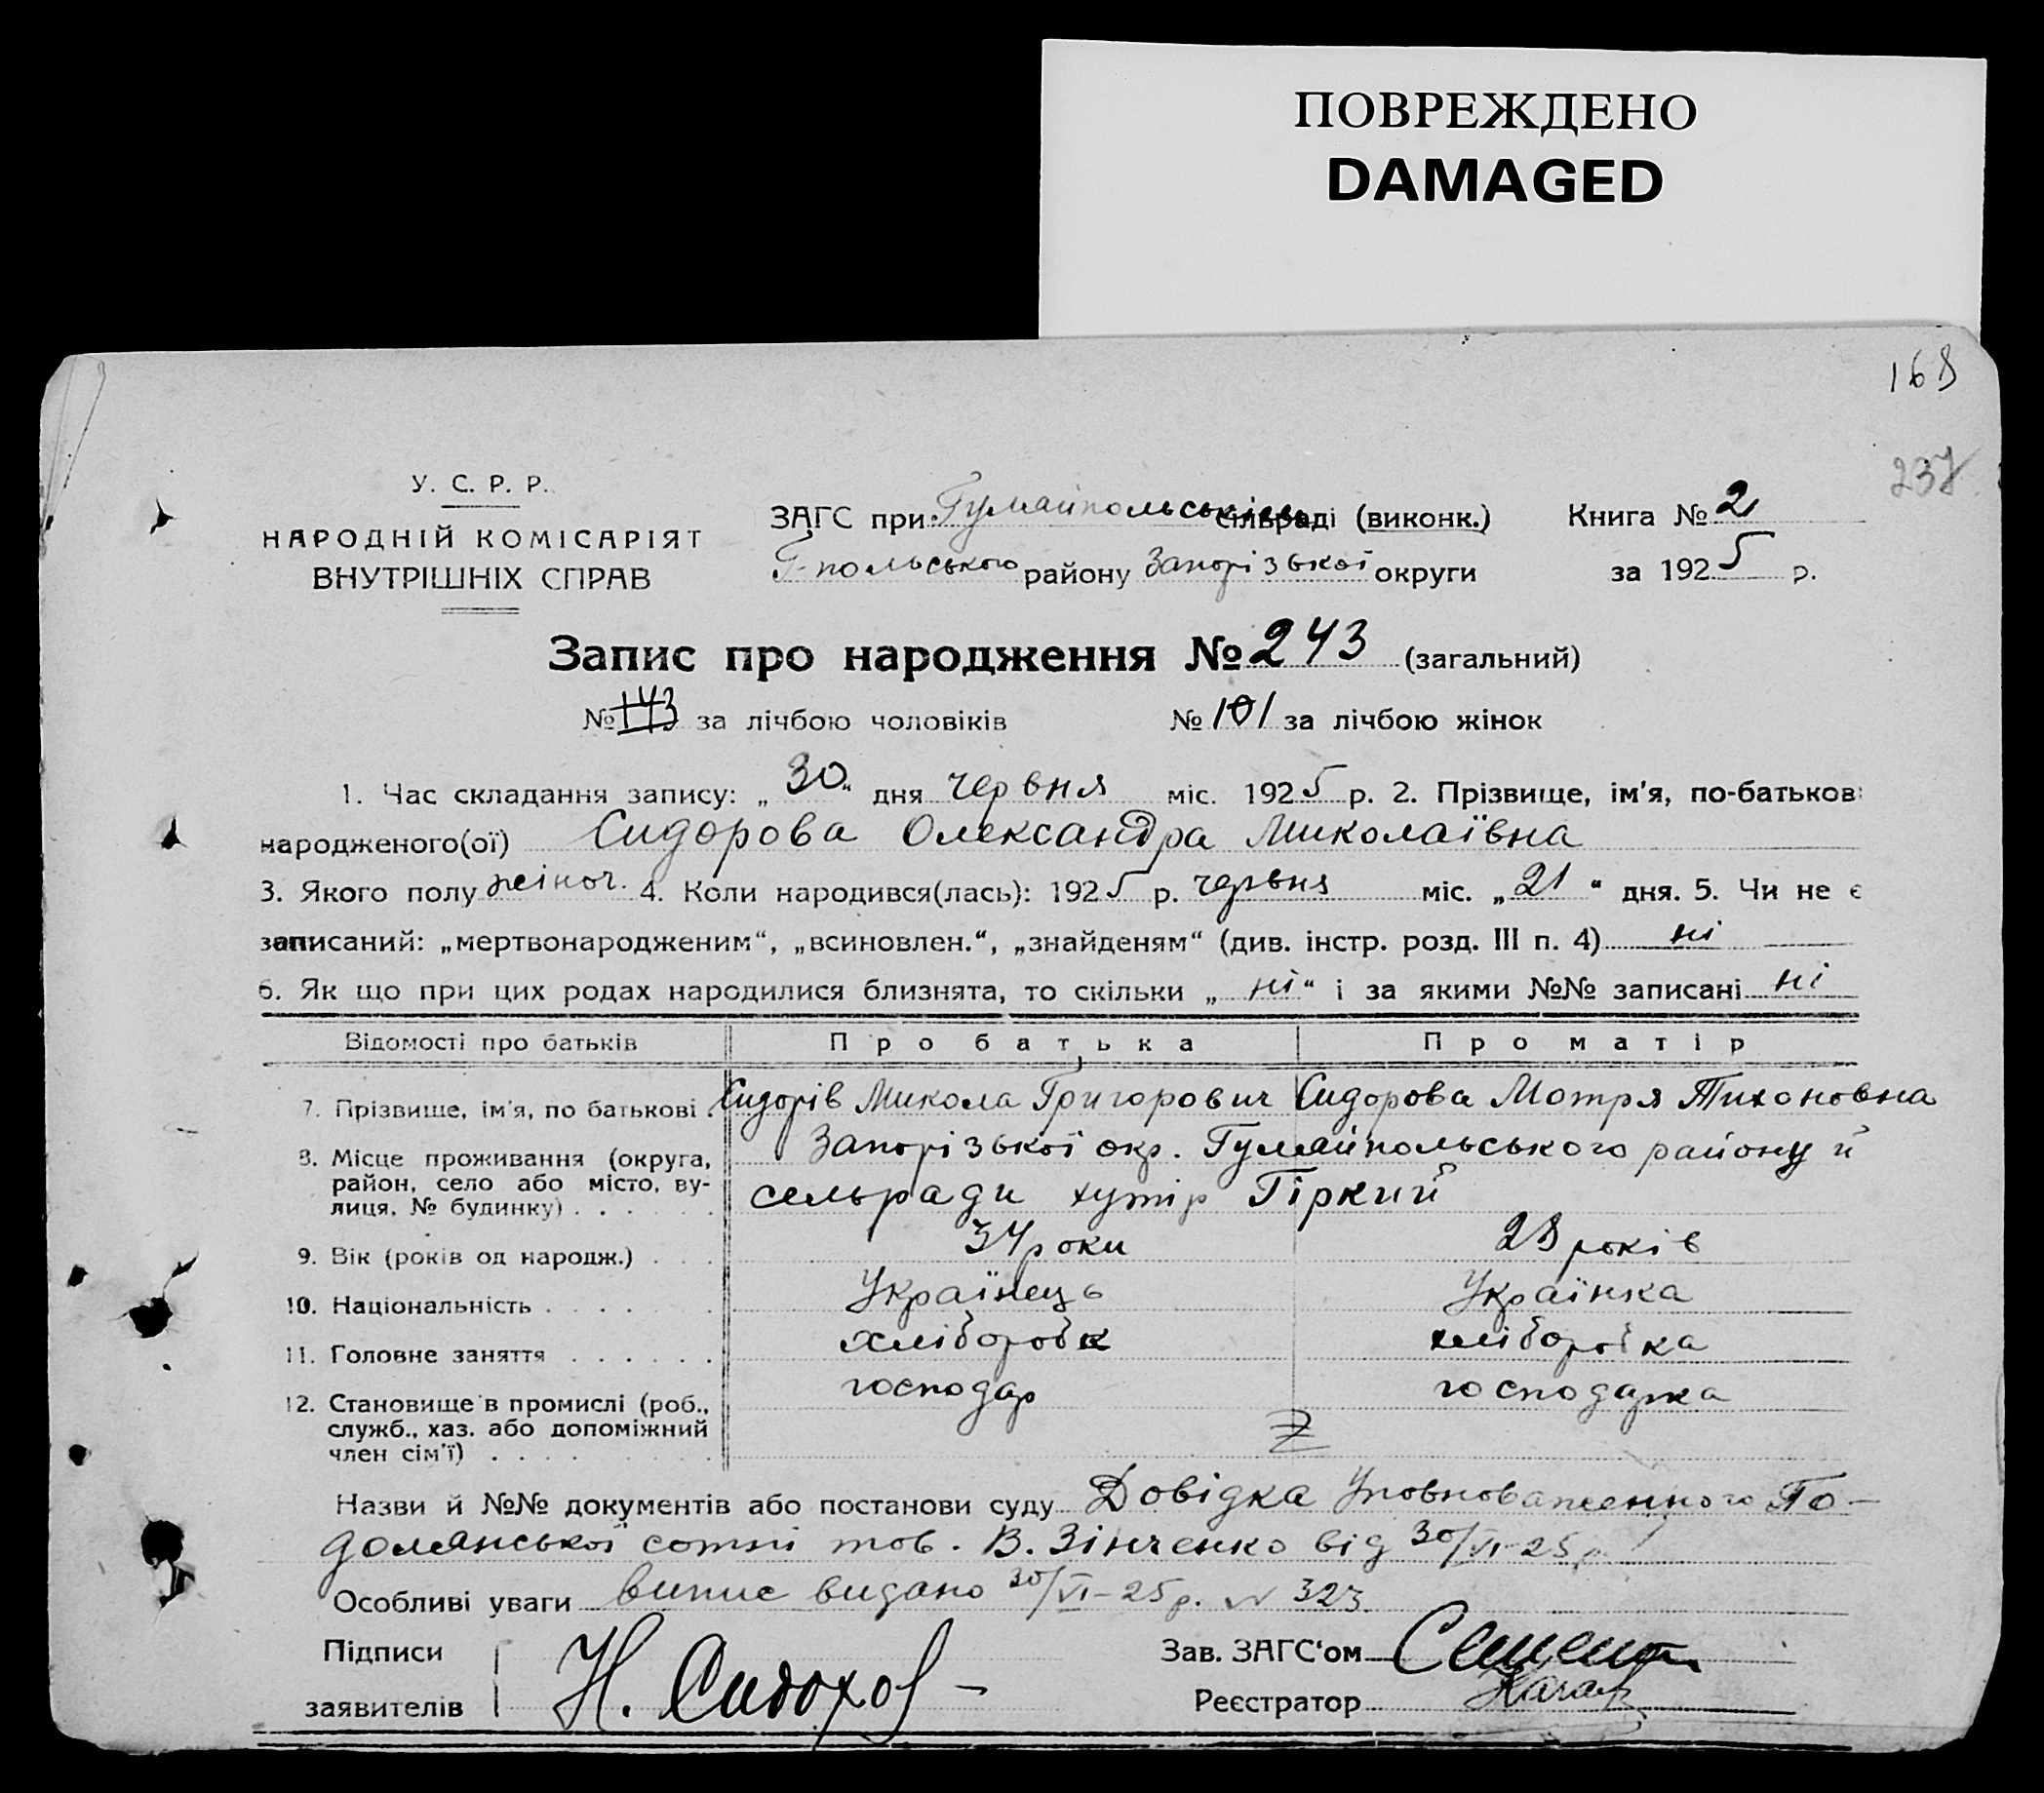 ПОВРЕЖДЕНО
DAMAGED
168
237
У. С. Р. Р.
НАРОДНІЙ КОМІСАРІЯТ
ВНУТРІШНІХ СПРАВ
ЗАГС при Гумайпольськім сільраді (виконк.) Книга № 2
Г-польського району Запорізької округи за 1925 р.
Запис про народження № 243 (загальний)
№ 143 за лічбою чоловіків № 101 за лічбою жінок
1. Час складання запису: „30“ дня червня міс. 1925 р. 2. Прізвище, ім'я, по-батькові
народженого(ої) Сидорова Олександра Миколаївна
3. Якого полу жіноч. 4. Коли народився(лась): 1925 р. червня міс. „21“ дня. 5. Чи не є
записаний: „мертвонародженим“, „всиновлен.“, „знайденям“ (див. інстр. розд. III п. 4) ні
6. Як що при цих родах народилися близнята, то скільки „ні“ і за якими №№ записані ні
Відомості про батьків Про батька Про матір
7. Прізвище, ім'я, по батькові Сидорів Микола Григорович Сидорова Мотря Тихоновна
8. Місце проживання (округа, район, село або місто, вулиця, № будинку) Запорізької окр. Гумайпольського району й
сельради хутір Гіркий
9. Вік (років од народж.) 34 роки 28 років
10. Національність Українець Українка
11. Головне заняття хлібороб хліборобка
12. Становище в промислі (роб., служб., хаз. або допоміжний член сім'ї) господар господарка
Назви й №№ документів або постанови суду Довідка Уповноваженного По-
долянської сотні тов. В. Зінченко від 30/VI-25 р.
Особливі уваги випис видано 30/VI-25 р. № 323
Підписи Зав. ЗАГС'ом
заявителів Н. Сидоров Реєстратор